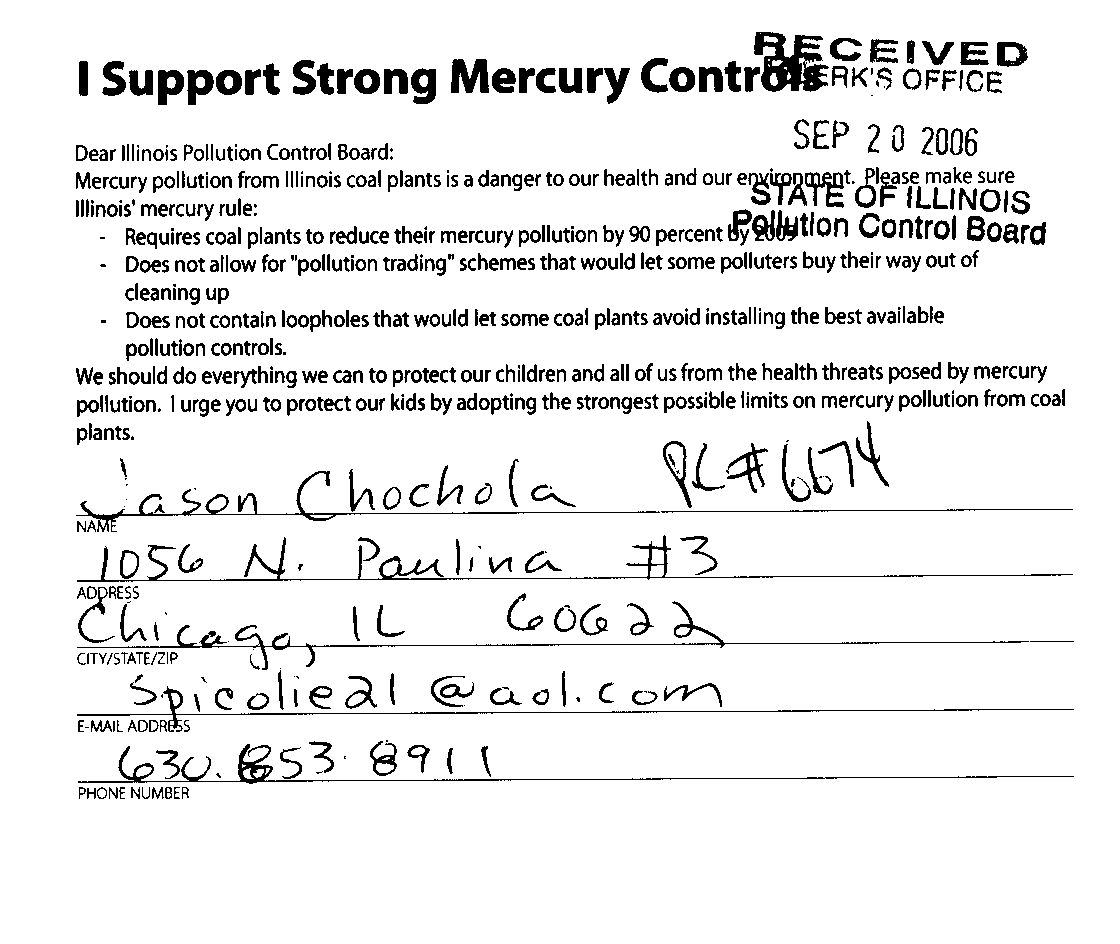 I Support Strong Mercury Controls
RECEIVED
CLERK'S OFFICE
SEP 20 2006
STATE OF ILLINOIS
Pollution Control Board
Dear Illinois Pollution Control Board:
Mercury pollution from Illinois coal plants is a danger to our health and our environment. Please make sure
Illinois' mercury rule:
- Requires coal plants to reduce their mercury pollution by 90 percent by 2009
- Does not allow for "pollution trading" schemes that would let some polluters buy their way out of
cleaning up
- Does not contain loopholes that would let some coal plants avoid installing the best available
pollution controls.
We should do everything we can to protect our children and all of us from the health threats posed by mercury
pollution. I urge you to protect our kids by adopting the strongest possible limits on mercury pollution from coal
plants.
Jason Chochola PC#6674
NAME
1056 N. Paulina #3
ADDRESS
Chicago, IL 60622
CITY/STATE/ZIP
Spicolie21@aol.com
E-MAIL ADDRESS
630.853.8911
PHONE NUMBER